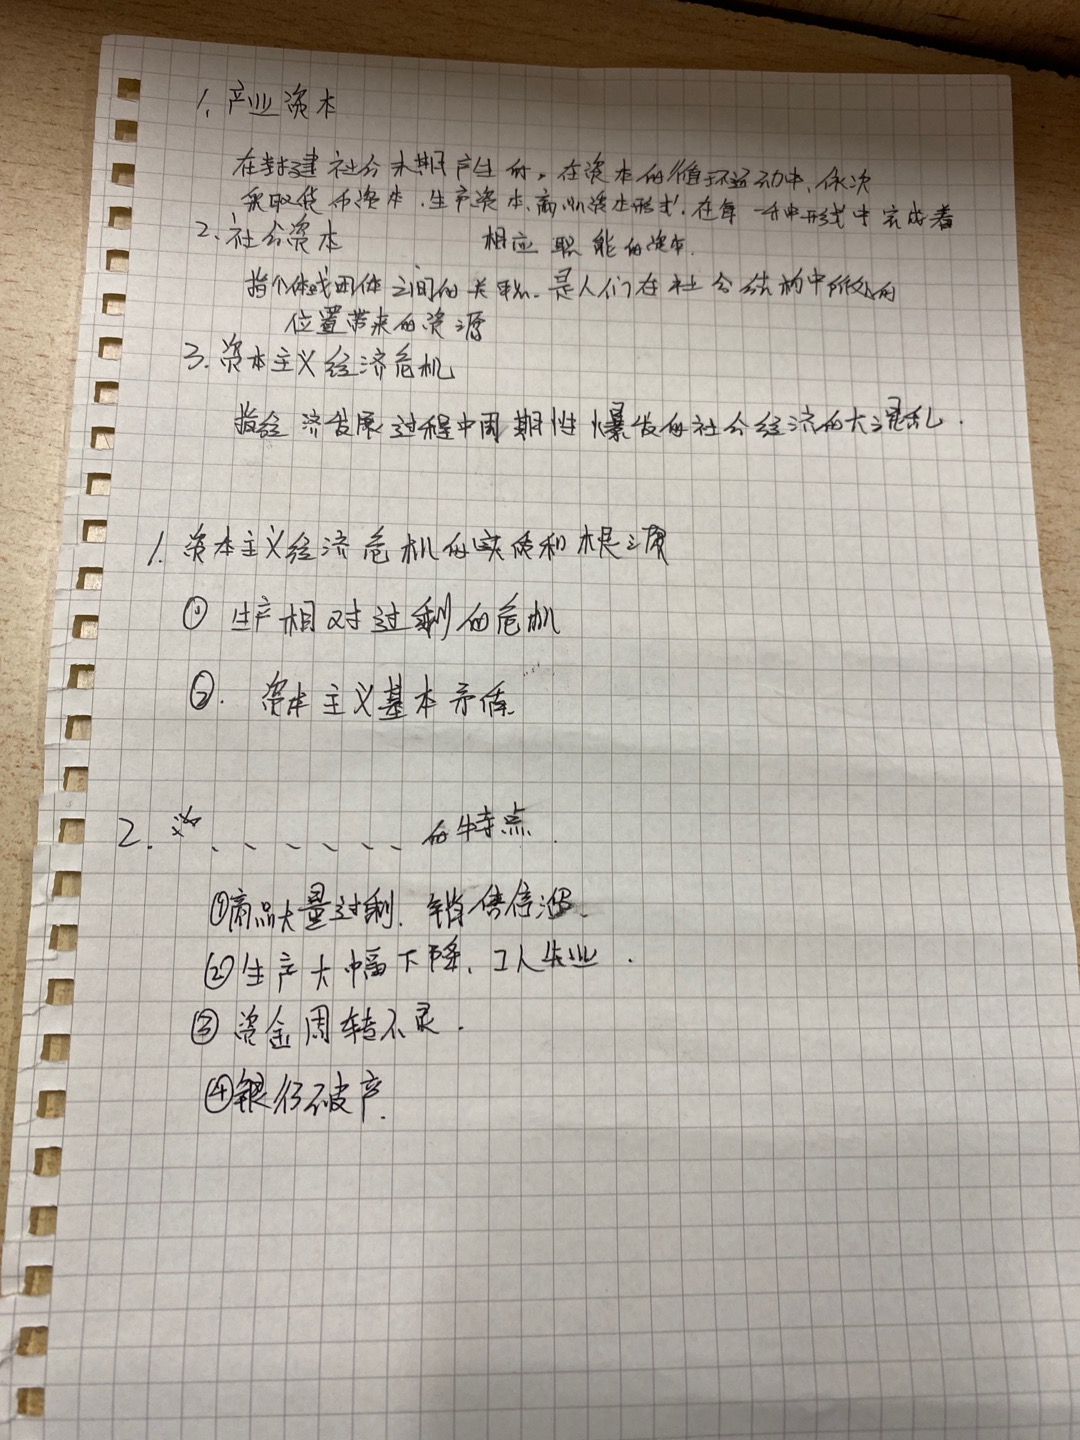 1. 产业资本
在封建社会末期产生的。在资本的循环运动中、依次
采取货币资本、生产资本、商业资本形式. 在每一种形式中完成着
相应职能的资本.
2. 社会资本
指个体或团体之间的关联、是人们在社会结构中所处的
位置带来的资源
3. 资本主义经济危机
指经济发展过程中周期性爆发的社会经济的大混乱.
1. 资本主义经济危机的实质和根源
① 生产相对过剩的危机
②. 资本主义基本矛盾
2. 、、、、、、的特点.
①商品大量过剩. 销售停滞.
② 生产大幅下降、工人失业.
③ 资金周转不灵.
④银行破产.